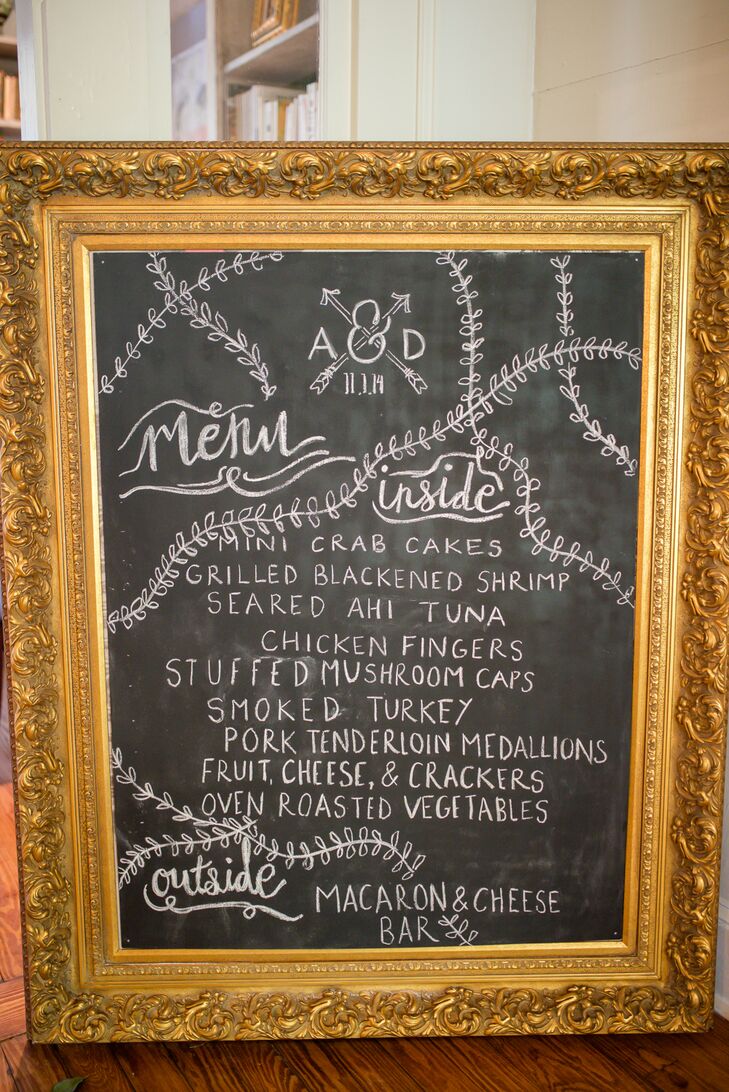 A & D
11.1.14
Menu
inside
MINI CRAB CAKES
GRILLED BLACKENED SHRIMP
SEARED AHI TUNA
CHICKEN FINGERS
STUFFED MUSHROOM CAPS
SMOKED TURKEY
PORK TENDERLOIN MEDALLIONS
FRUIT, CHEESE, & CRACKERS
OVEN ROASTED VEGETABLES
outside
MACARON & CHEESE
BAR